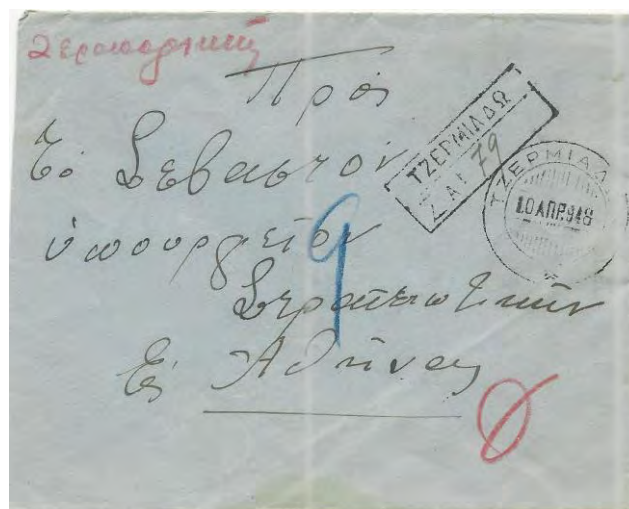 Ἀεροπορικῶς
Πρὸς
Τὸ Σεβαστὸν
ὑπουργεῖον
Στρατιωτικῶν
Εἰς Ἀθήνας
ΤΖΕΡΜΙΑΔΩ
Σ.ΑΡ. 79
ΤΖΕΡΜΙΑΔ
10 ΑΠΡ. 948
9